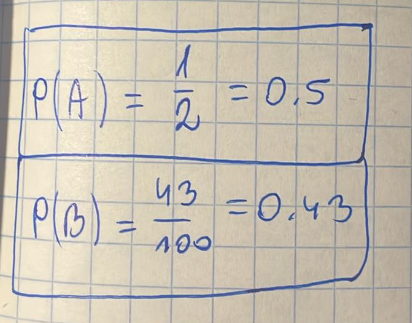 P(A) = 1/2 = 0.5
P(B) = 43/100 = 0.43